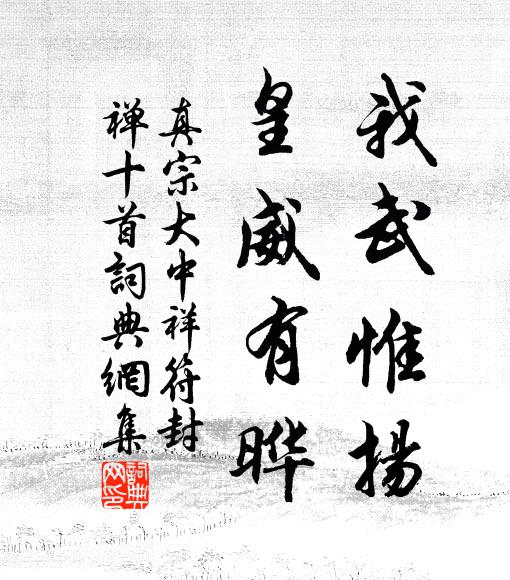 我武惟揚
皇威有晔
真宗大中祥符封
禅十首詞典網集
詞典網印